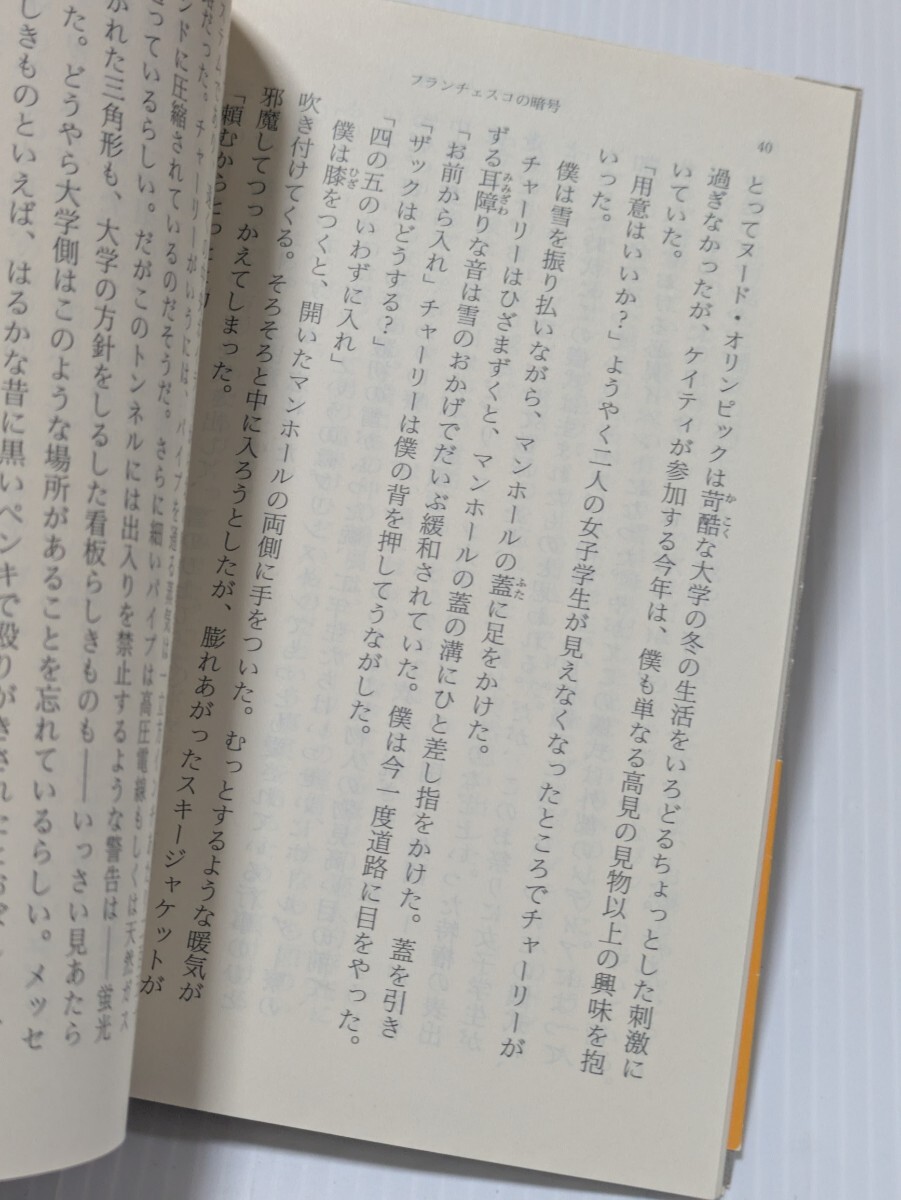 40
フランチェスコの暗号
とってヌード・オリンピックは苛酷な大学の冬の生活をいろどるちょっとした刺激に
かこく
過ぎなかったが、ケイティが参加する今年は、僕も単なる高見の見物以上の興味を抱
いていた。
「用意はいいか?」ようやく二人の女子学生が見えなくなったところでチャーリーが
いった。
僕は雪を振り払いながら、マンホールの蓋に足をかけた。
ふた
チャーリーはひざまずくと、マンホールの蓋の溝にひと差し指をかけた。蓋を引き
ずる耳障りな音は雪のおかげでだいぶ緩和されていた。僕は今一度道路に目をやった。
みみざわ
「お前から入れ」チャーリーは僕の背を押してうながした。
「ザックはどうする?」
「四の五のいわずに入れ」
僕は膝をつくと、開いたマンホールの両側に手をついた。むっとするような暖気が
ひざ
吹き付けてくる。そろそろと中に入ろうとしたが、膨れあがったスキージャケットが
邪魔してつっかえてしまった。
「頼むから
だった。チャーリーがいうには、パイプを通る蒸気は
ンドに圧縮されているのだそうだ。さらに細いパイプは高圧電線もしくは天然ガス
っているらしい。だがこのトンネルには出入りを禁止するような警告は――蛍光
かれた三角形も、大学の方針をしるした看板らしきものも――いっさい見あたら
た。どうやら大学側はこのような場所があることを忘れているらしい。メッセ
しきものといえば、はるかな昔に黒いペンキで殴りがきされた